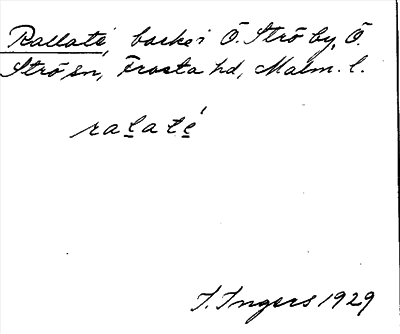 Rallaté, backe i Ö. Strö by, Ö.
Strö sn, Frosta hd, Malm. l.
ralaté
I. Ingers 1929